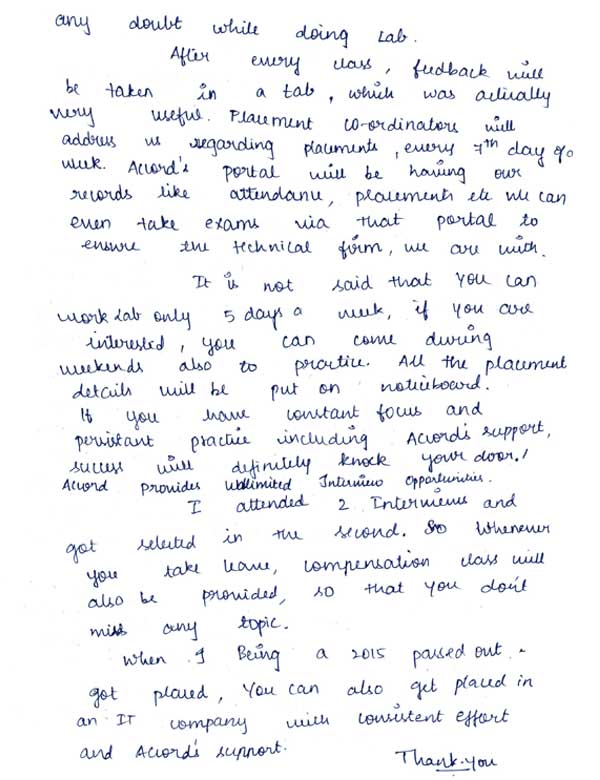 any doubt while doing Lab.
After every class, feedback will
be taken in a tab, which was actually
very useful. Placement co-ordinators will
address us regarding placements, every 7th day of
week. Accord's portal will be having our
records like attendance, placements etc we can
even take exams via that portal to
ensure the technical firm, we are with.
It is not said that you can
work Lab only 5 days a week, if you are
interested, you can come during
weekends also to practice. All the placement
details will be put on noticeboard.
If you have constant focus and
persistant practice including Accord's support,
success will definitely knock your door!
Accord Provides Unlimited Interview Opportunities.
I attended 2 Interviews and
got selected in the second. So Whenever
you take leave, compensation class will
also be provided, so that you don't
miss any topic.
When I Being a 2015 passed out
got placed, You can also get placed in
an IT company with consistent effort
and Accord's support.
Thank.you